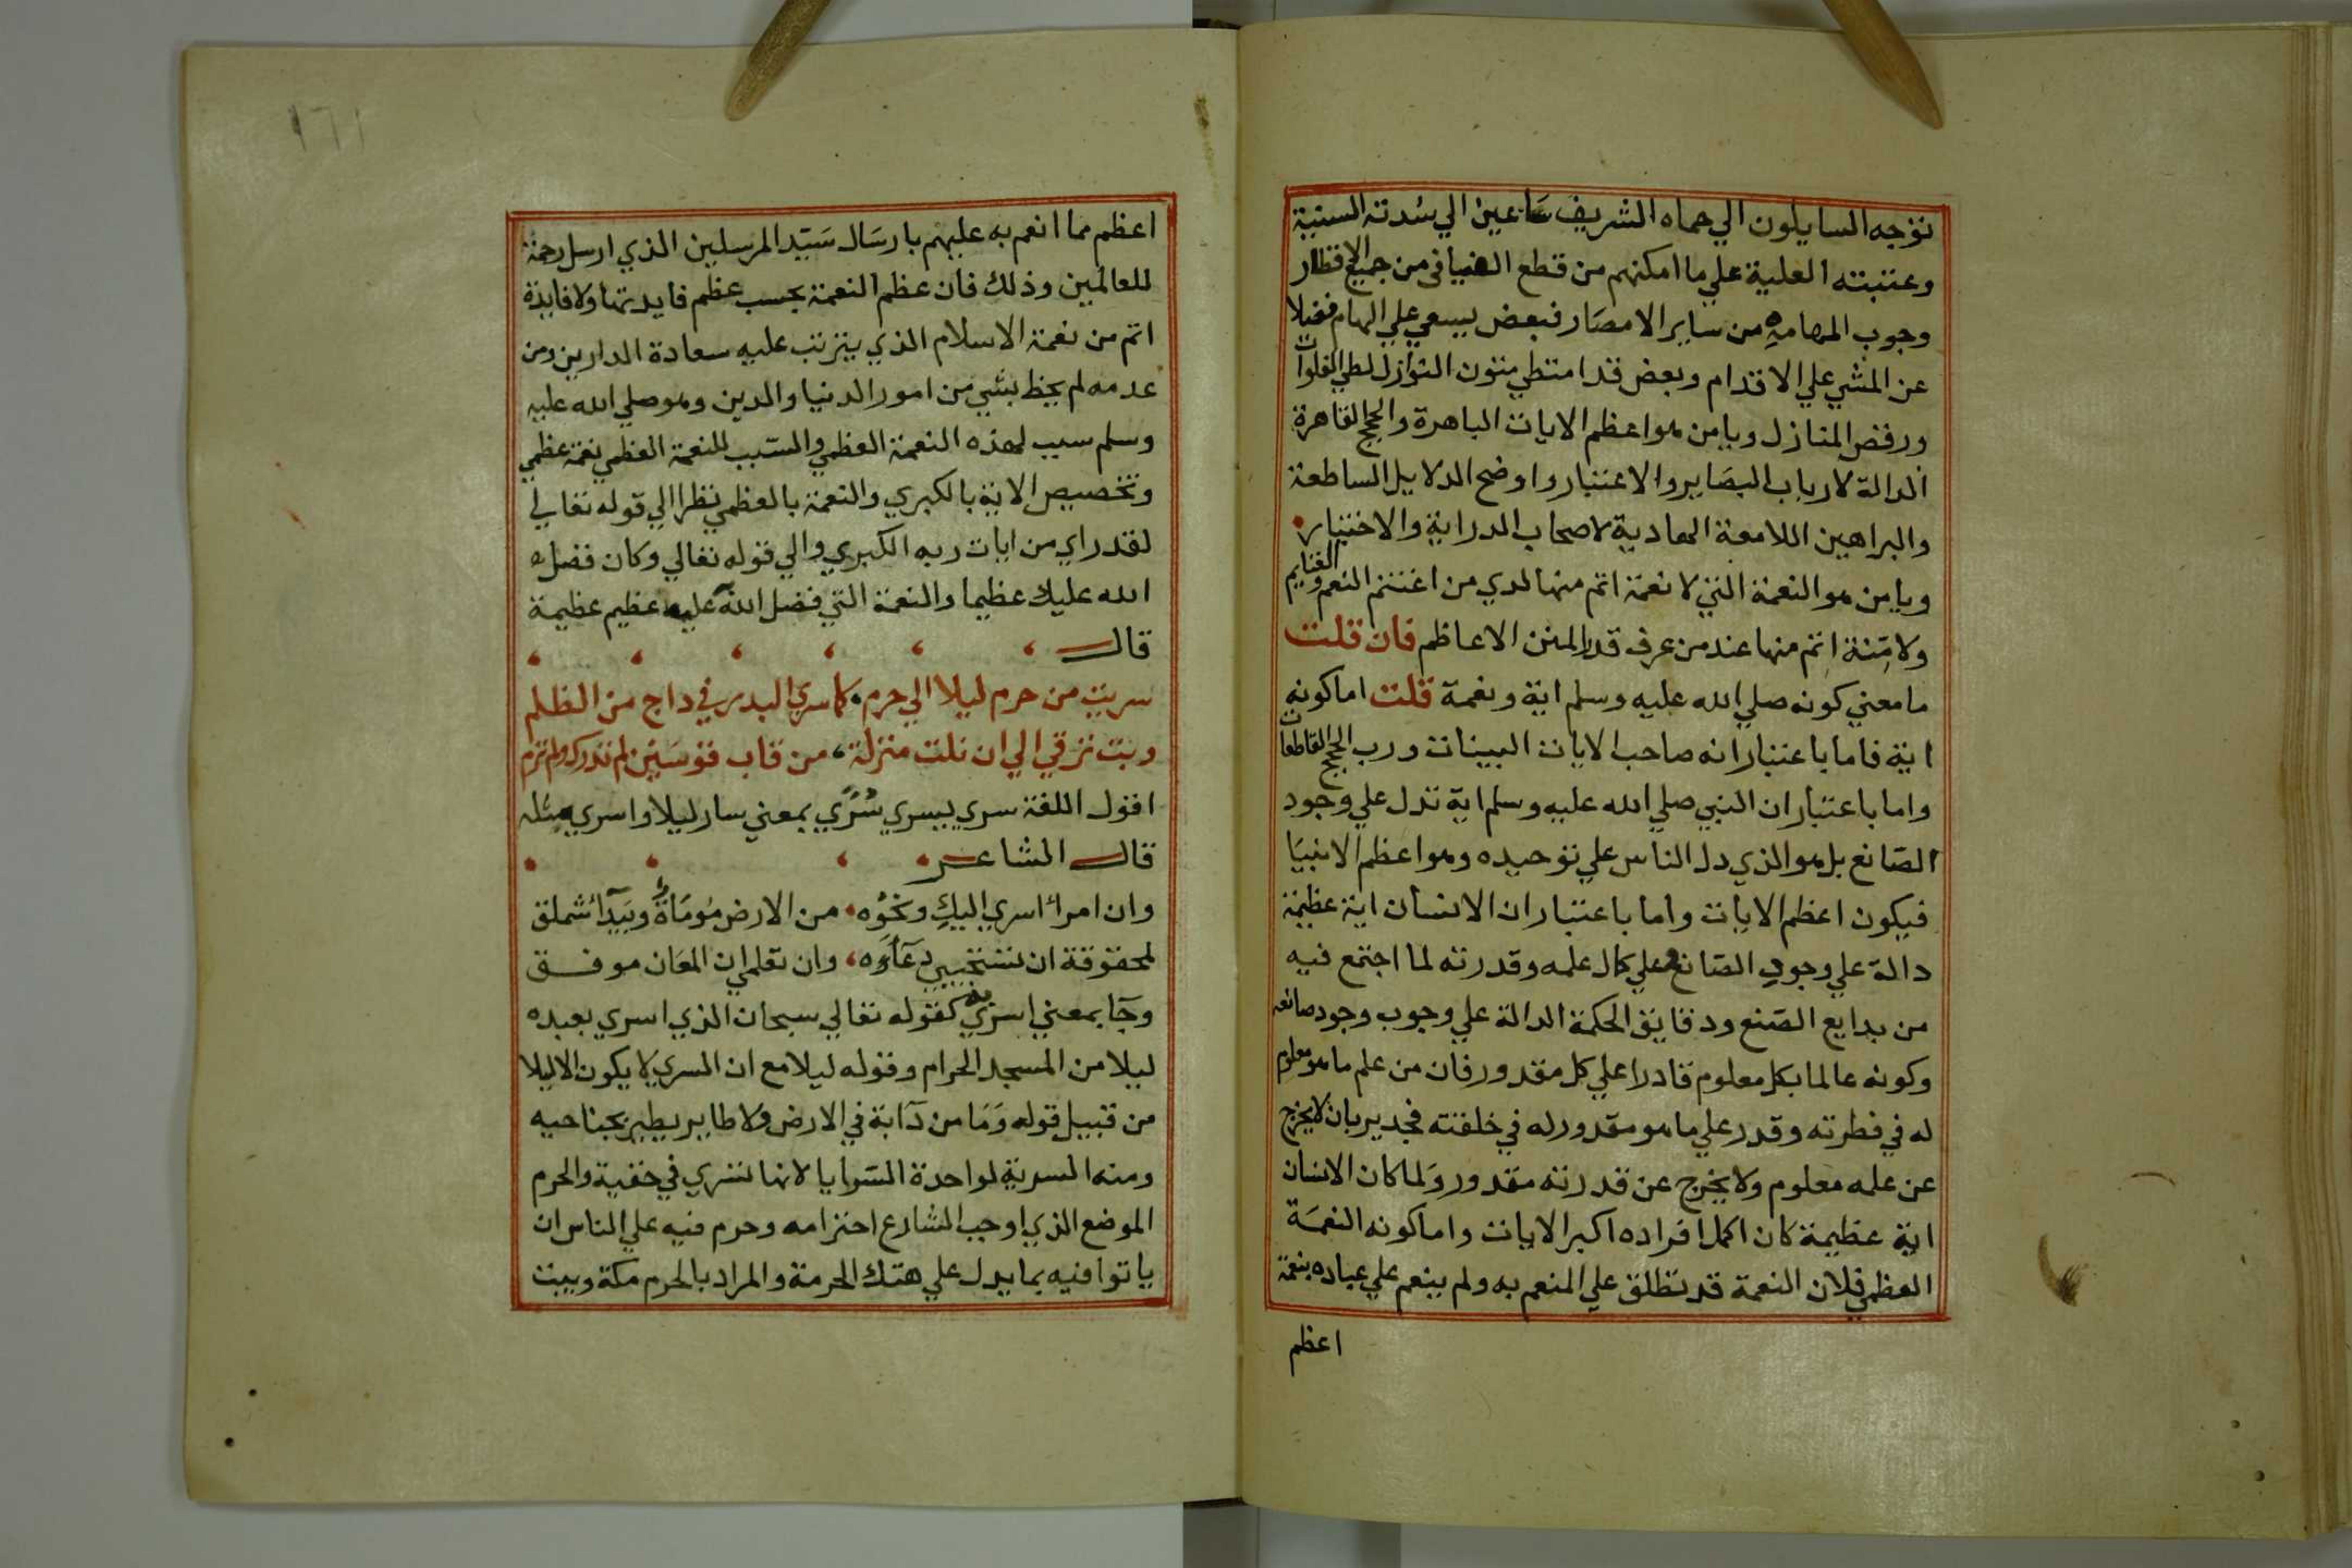 توجه السايلون الي حماه الشريف ساعين الي سدته السنية
وعتبته العلية علي ما امكنهم من قطع الفيافى من جميع الاقطار
وجوب المهامه من ساير الامصار فبعض يسعي علي الهام فضلا
عن المشي علي الاقدام وبعض قد امتطي متون النوازل لطي الفلوات
ورفض المنازل ويا من هو اعظم الايات الباهرة والحجج القاهرة
الدالة لارباب البصاير والاعتبار واوضح الدلايل الساطعة
والبراهين اللامعة الهادية لاصحاب الدراية والاختيار
ويا من هو النعمة التي لا نعمة اتم منها لدي من اغتنم النعم والغنايم
ولا مِنة اتم منها عند من عرف قدر المنن الاعاظم فان قلت
ما معني كونه صلي الله عليه وسلم اية ونعمة قلت اما كونه
اية فاما باعتبار انه صاحب الايات البينات ورب الحجج القاطعات
واما باعتبار ان النبي صلي الله عليه وسلم اية تدل علي وجود
الصانع بل هو الذي دل الناس علي توحيده وهو اعظم الانبيا
فيكون اعظم الايات واما باعتبار ان الانسان اية عظيمة
دالة علي وجود الصانع وعلي كمال علمه وقدرته لما اجتمع فيه
من بدايع الصنع ودقايق الحكمة الدالة علي وجوب وجود صانعه
وكونه عالما بكل معلوم قادرا علي كل مقدور فان من علم ما هو معلوم
له في فطرته وقدر علي ما هو مقدور له في خلقته فجدير بان لا يخرج
عن علمه معلوم ولا يخرج عن قدرته مقدور ولما كان الانسان
اية عظيمة كان اكمل افراده اكبر الايات واما كونه النعمة
العظمي فلان النعمة قد تطلق علي المنعم به ولم ينعم علي عباده بنعمة
اعظم
١٦١
اعظم مما انعم به عليهم بارسال سيد المرسلين الذي ارسل رحمة
للعالمين وذلك فان عظم النعمة بحسب عظم فايدتها ولا فايدة
اتم من نعمة الاسلام الذي يترتب عليه سعادة الدارين ومن
عدمه لم يحظ بشي من امور الدنيا والدين وهو صلي الله عليه
وسلم سبب لهذه النعمة العظمي والسبب للنعمة العظمي نعمة عظمي
وتخصيص الاية بالكبري والنعمة بالعظمي نظرا الي قوله تعالي
لقد راي من ايات ربه الكبري والي قوله تعالي وكان فضل
الله عليك عظيما والنعمة التي فضل الله عليه عظيم عظيمة
قال
سريت من حرم ليلا الي حرم كما سري البدر في داج من الظلم
وبت ترقي الي ان نلت منزلة من قاب قوسين لم تدرك ولم ترم
اقول اللغة سري يسري سُرًي بمعني سار ليلا واسري مثله
قال الشاعر
وان امرأ اسري اليكِ ونحوه من الارض مُومَاةٌ وبَيدآء سملق
لمحقوقة ان تستجيبي دعآءه وان تعلمي ان المعان موفق
وجآ بمعني اسري به كقوله تعالي سبحان الذي اسري بعبده
ليلا من المسجد الحرام وقوله ليلا مع ان السري لا يكون الا ليلا
من قبيل قوله وَمَا من دآبة في الارض ولا طاير يطير بجناحيه
ومنه السرية لواحدة السرايا لانها تسري في خفية والحرم
الموضع الذي اوجب الشارع احترامه وحرم فيه علي الناس ان
ياتوا فيه بما يدل علي هتك الحرمة والمراد بالحرم مكة وبيت